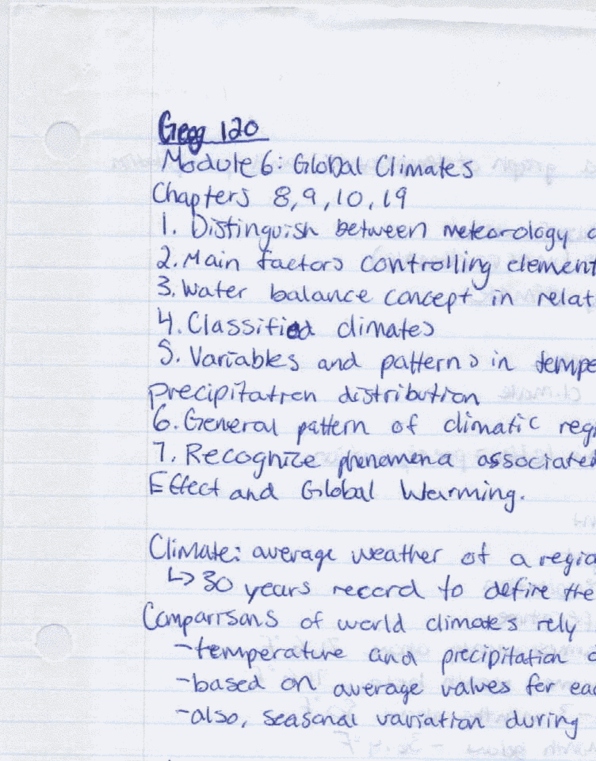 Geog 120
Module 6: Global Climates
Chapters 8, 9, 10, 19
1. Distinguish between meteorology
2. Main factors controlling element
3. Water balance concept in relat
4. Classified climates
5. Variables and patterns in tempe
precipitation distribution
6. General pattern of climatic reg
7. Recognize phenomena associate
Effect and Global Warming.
Climate: average weather of a regio
↳ 30 years record to define the
Comparisons of world climates rely
-temperature and precipitation
-based on average values for eac
-also, seasonal variation during